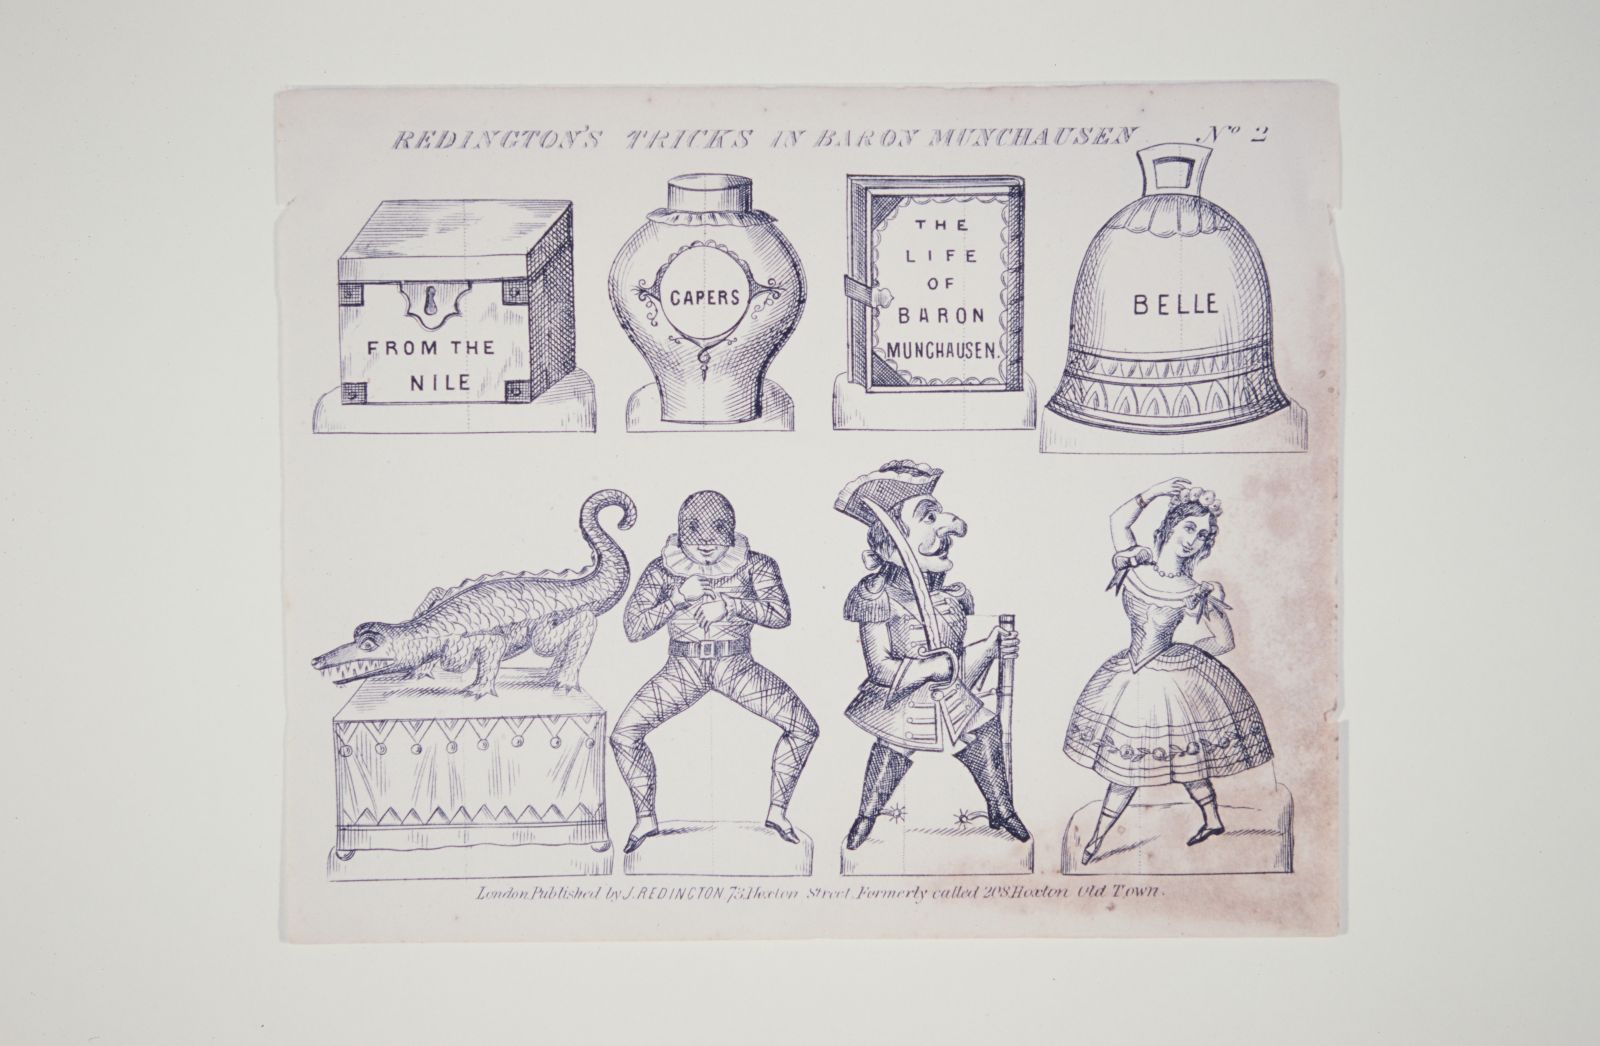 REDINGTON'S TRICKS IN BARON MUNCHAUSEN Nº 2
FROM THE
NILE
CAPERS
THE
LIFE
OF
BARON
MUNCHAUSEN.
BELLE
London, Published by J. REDINGTON, 73, Hoxton Street, Formerly called 208, Hoxton Old Town.